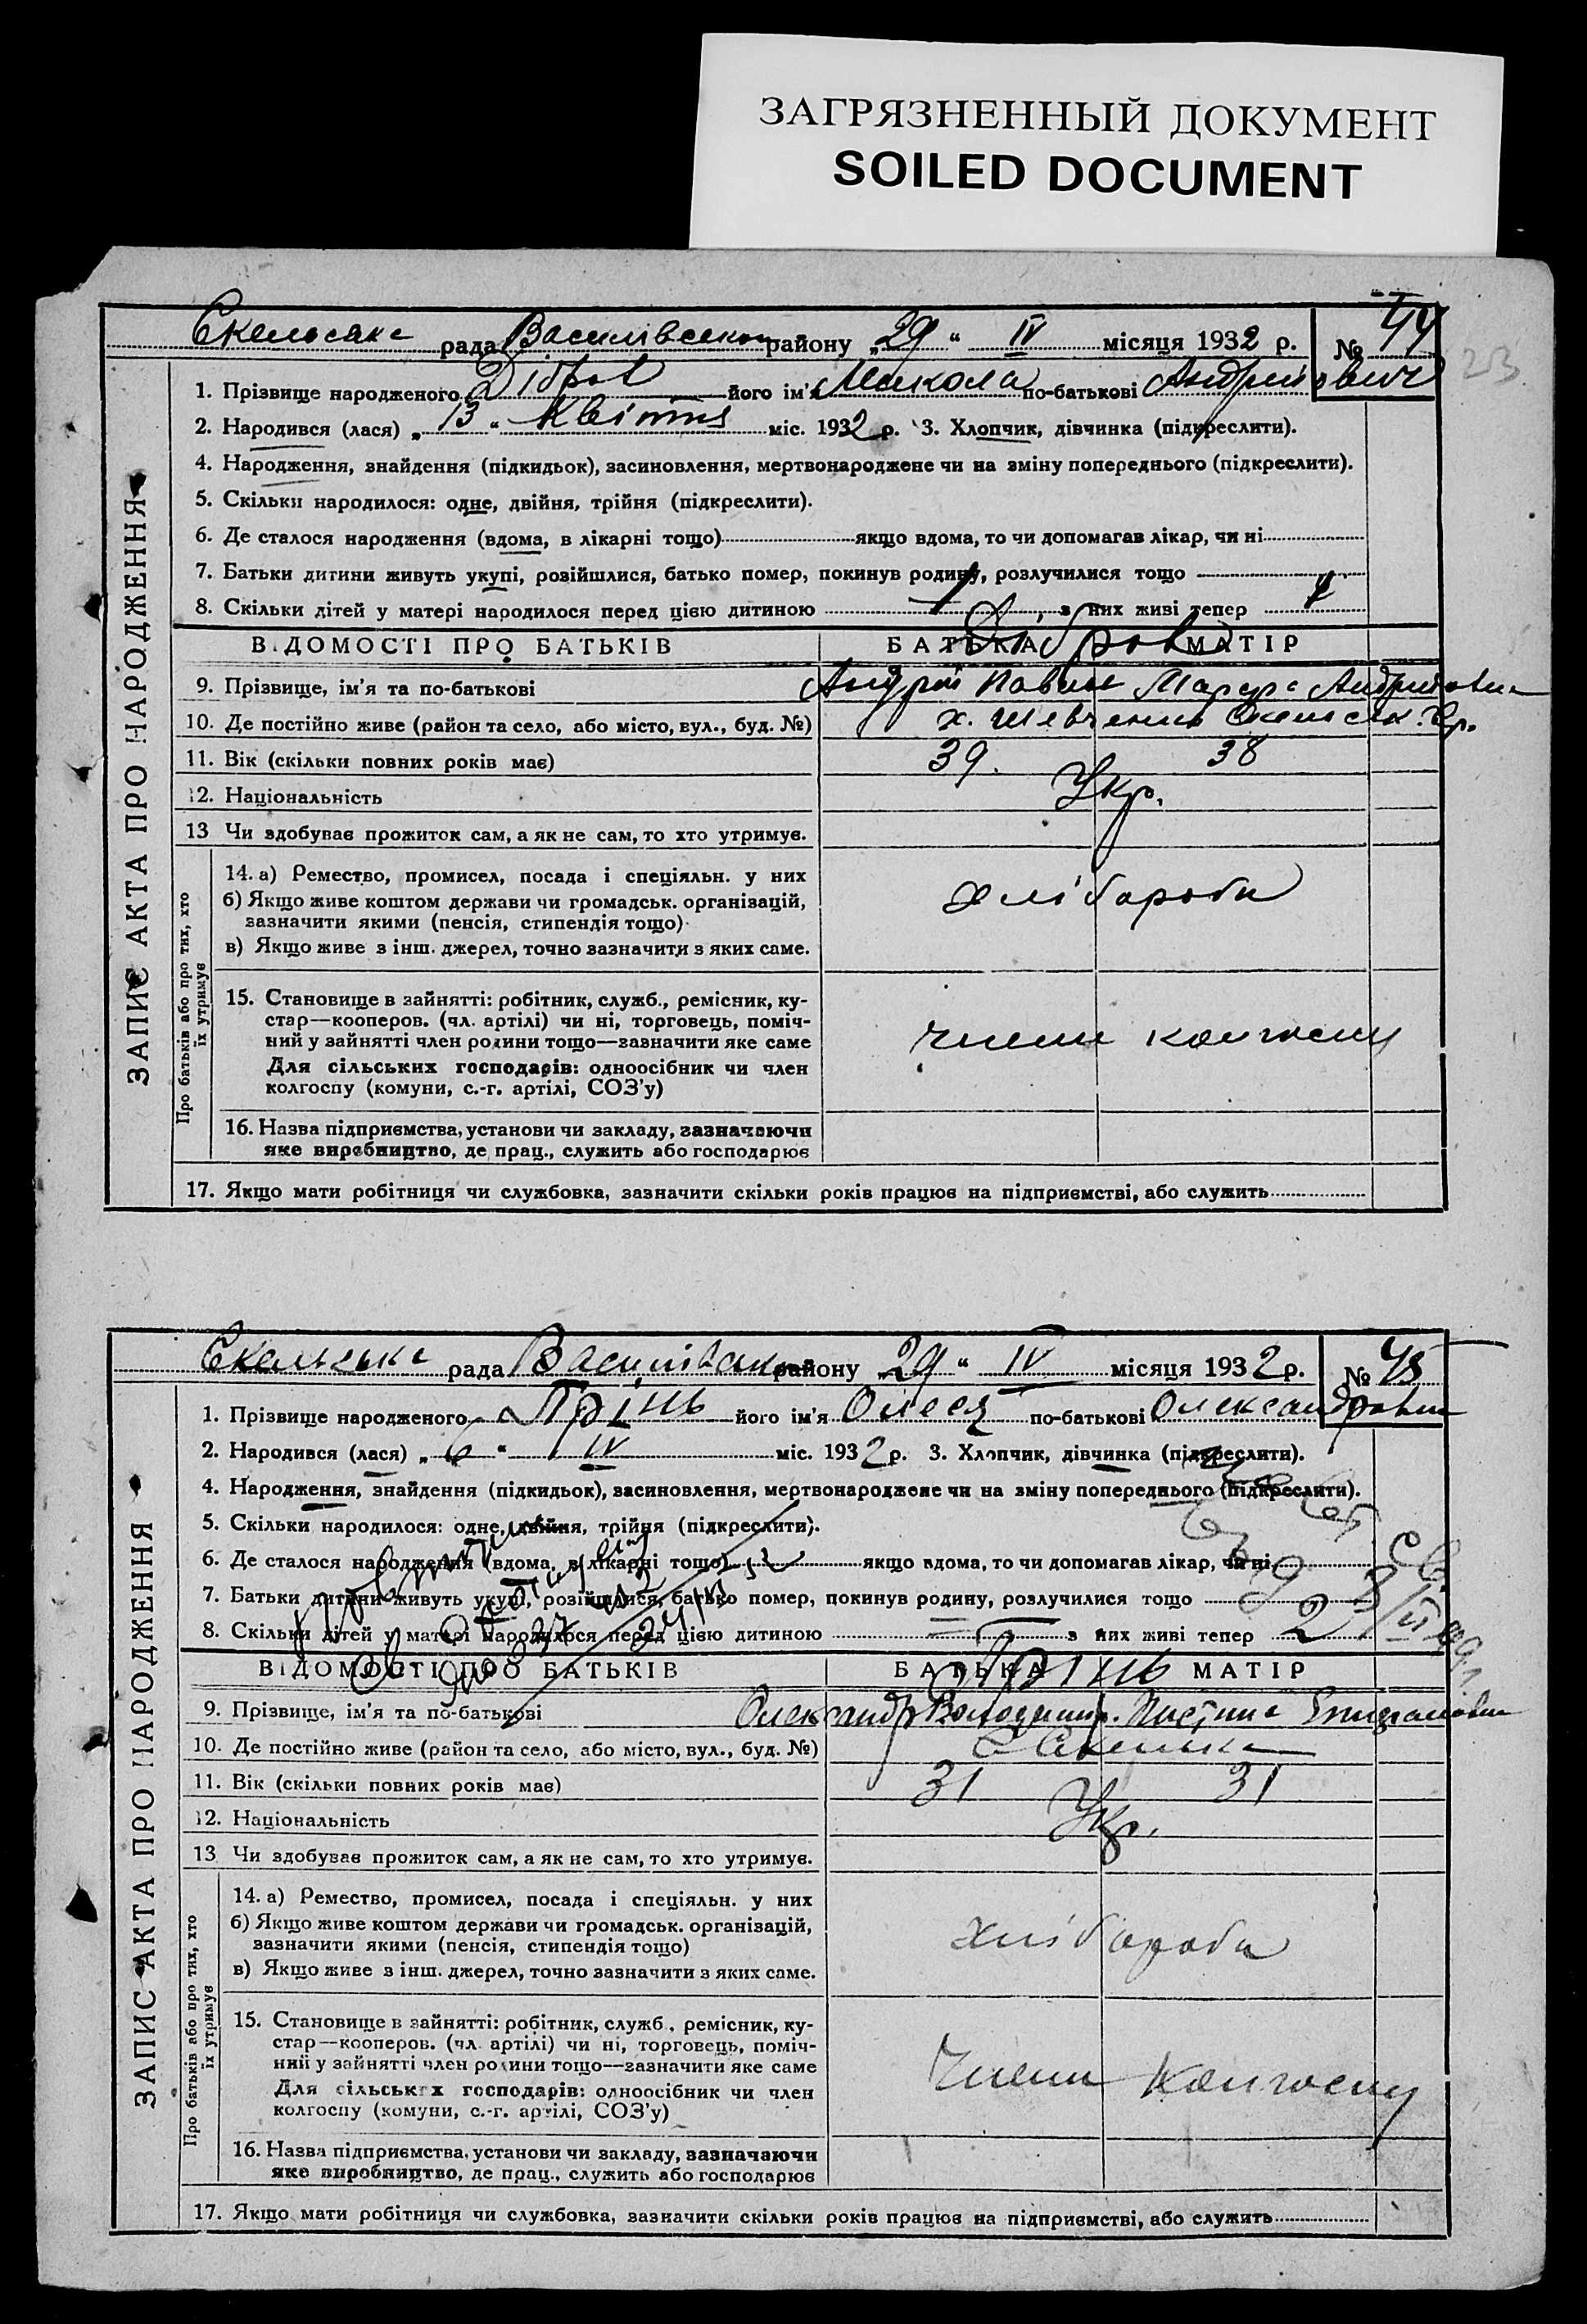 ЗАГРЯЗНЕННЫЙ ДОКУМЕНТ
SOILED DOCUMENT
23
Скельська рада Василівського району „29“ IV місяця 1932 р. № 44
ЗАПИС АКТА ПРО НАРОДЖЕННЯ
1. Прізвище народженого Діброва його ім'я Микола по-батькові Андрійович
2. Народився (лася) „13“ Квітня міс. 1932 р. 3. Хлопчик, дівчинка (підкреслити).
4. Народження, знайдення (підкидьок), засиновлення, мертвонароджене чи на зміну попереднього (підкреслити).
5. Скільки народилося: одне, двійня, трійня (підкреслити).
6. Де сталося народження (вдома, в лікарні тощо) якщо вдома, то чи допомагав лікар, чи ні
7. Батьки дитини живуть укупі, розійшлися, батько помер, покинув родину, розлучилися тощо
8. Скільки дітей у матері народилося перед цією дитиною 1 з них живі тепер 1
ВІДОМОСТІ ПРО БАТЬКІВ БАТЬКА МАТІР
Діброва
9. Прізвище, ім'я та по-батькові Андрій Павлов
10. Де постійно живе (район та село, або місто, вул., буд. №) х. Шевченко
11. Вік (скільки повних років має) 39. 38
12. Національність Укр.
13 Чи здобуває прожиток сам, а як не сам, то хто утримує.
Про батьків або про тих, хто їх утримує
14. а) Ремество, промисел, посада і спеціяльн. у них
б) Якщо живе коштом держави чи громадськ. організацій,
зазначити якими (пенсія, стипендія тощо)
в) Якщо живе з інш. джерел, точно зазначити з яких саме.
хлібороби
15. Становище в зайнятті: робітник, служб., ремісник, ку-
стар—кооперов. (чл. артілі) чи ні, торговець, поміч-
ний у зайнятті член родини тощо—зазначити яке саме
Для сільських господарів: одноосібник чи член
колгоспу (комуни, с.-г. артілі, СОЗ'у)
члени колгоспу
16. Назва підприємства, установи чи закладу, зазначаючи
яке виробництво, де прац., служить або господарює
17. Якщо мати робітниця чи службовка, зазначити скільки років працює на підприємстві, або служить
Скельська рада Василівського району „29“ IV місяця 1932 р. № 45
ЗАПИС АКТА ПРО НАРОДЖЕННЯ
1. Прізвище народженого його ім'я Олеся по-батькові Олександровна
2. Народився (лася) „6“ IV міс. 1932 р. 3. Хлопчик, дівчинка (підкреслити).
4. Народження, знайдення (підкидьок), засиновлення, мертвонароджене чи на зміну попереднього (підкреслити).
5. Скільки народилося: одне, двійня, трійня (підкреслити).
6. Де сталося народження (вдома, в лікарні тощо) якщо вдома, то чи допомагав лікар, чи ні
7. Батьки дитини живуть укупі, розійшлися, батько помер, покинув родину, розлучилися тощо
8. Скільки дітей у матері народилося перед цією дитиною з них живі тепер 2
ВІДОМОСТІ ПРО БАТЬКІВ БАТЬКА МАТІР
9. Прізвище, ім'я та по-батькові Олександр Володимир.
10. Де постійно живе (район та село, або місто, вул., буд. №) с Скелька
11. Вік (скільки повних років має) 31 31
12. Національність Укр.
13 Чи здобуває прожиток сам, а як не сам, то хто утримує.
Про батьків або про тих, хто їх утримує
14. а) Ремество, промисел, посада і спеціяльн. у них
б) Якщо живе коштом держави чи громадськ. організацій,
зазначити якими (пенсія, стипендія тощо)
в) Якщо живе з інш. джерел, точно зазначити з яких саме.
хлібороби
15. Становище в зайнятті: робітник, служб., ремісник, ку-
стар—кооперов. (чл. артілі) чи ні, торговець, поміч-
ний у зайнятті член родини тощо—зазначити яке саме
Для сільських господарів: одноосібник чи член
колгоспу (комуни, с.-г. артілі, СОЗ'у)
Члени колгоспу
16. Назва підприємства, установи чи закладу, зазначаючи
яке виробництво, де прац., служить або господарює
17. Якщо мати робітниця чи службовка, зазначити скільки років працює на підприємстві, або служить